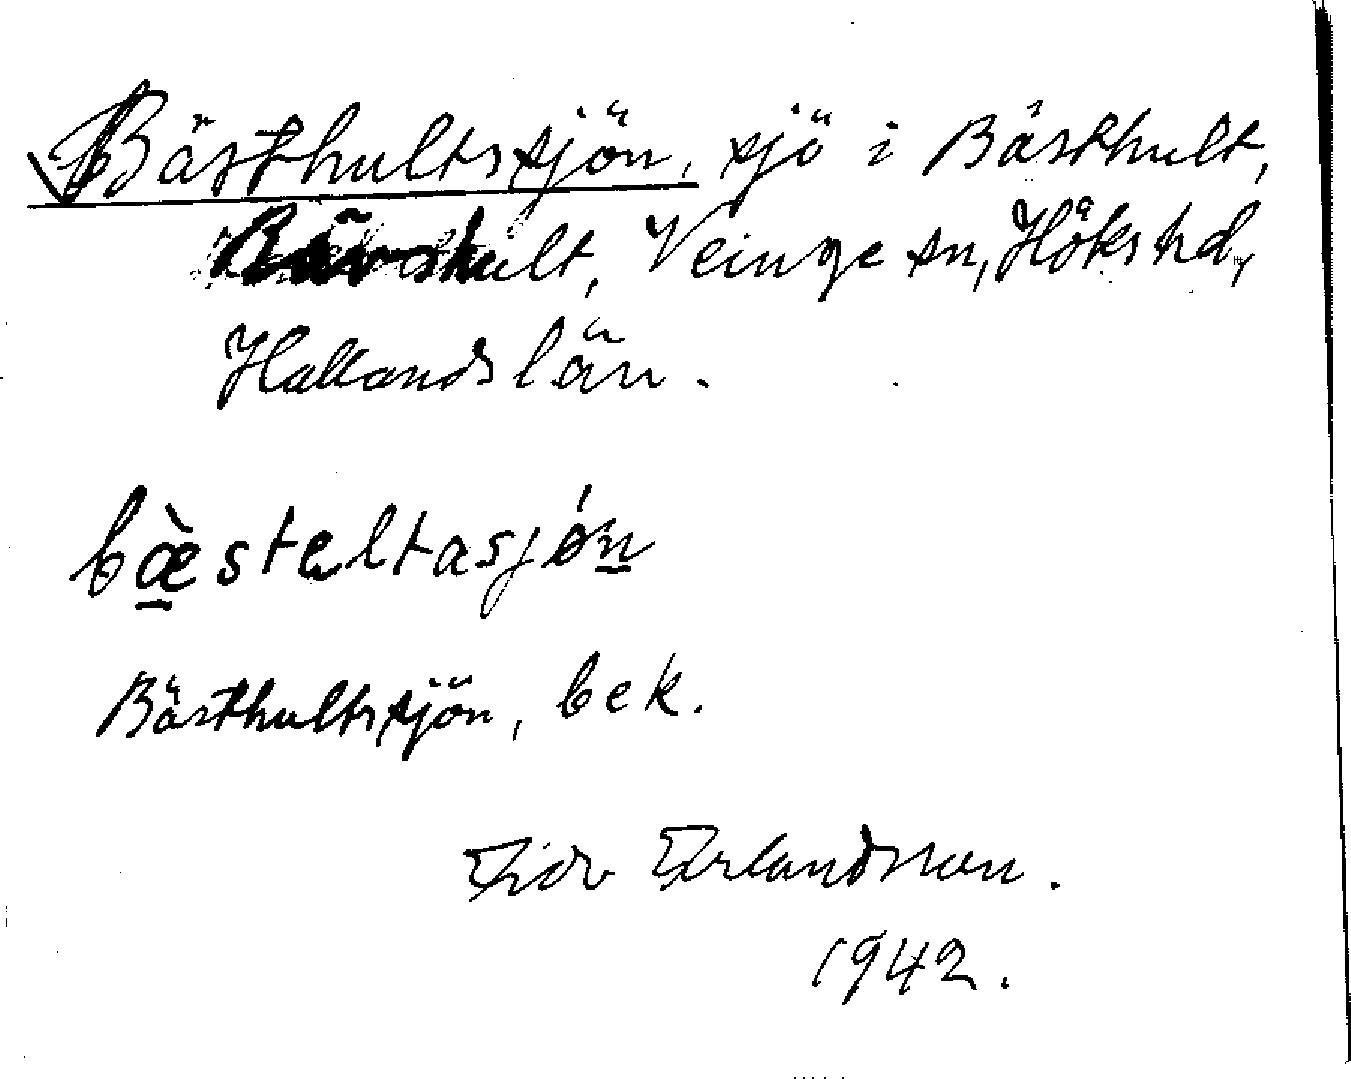 Bästhultssjön, sjö i Bästhult,
Veinge sn, Höks hd,
Hallands län.
bæ̀steltasjón
Bästhultssjön, bek.
Erlandsson.
1942.